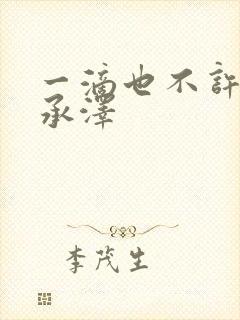 一滴也不许
承泽
李茂生